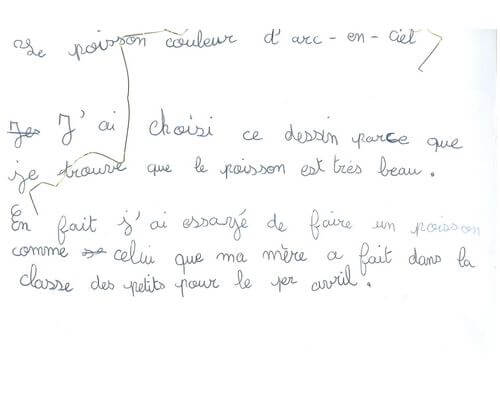 Le poisson couleur d'arc-en-ciel
J'ai choisi ce dessin parce que
je trouve que le poisson est très beau.
En fait j'ai essayé de faire un poisson
comme celui que ma mère a fait dans la
classe des petits pour le 1er avril.